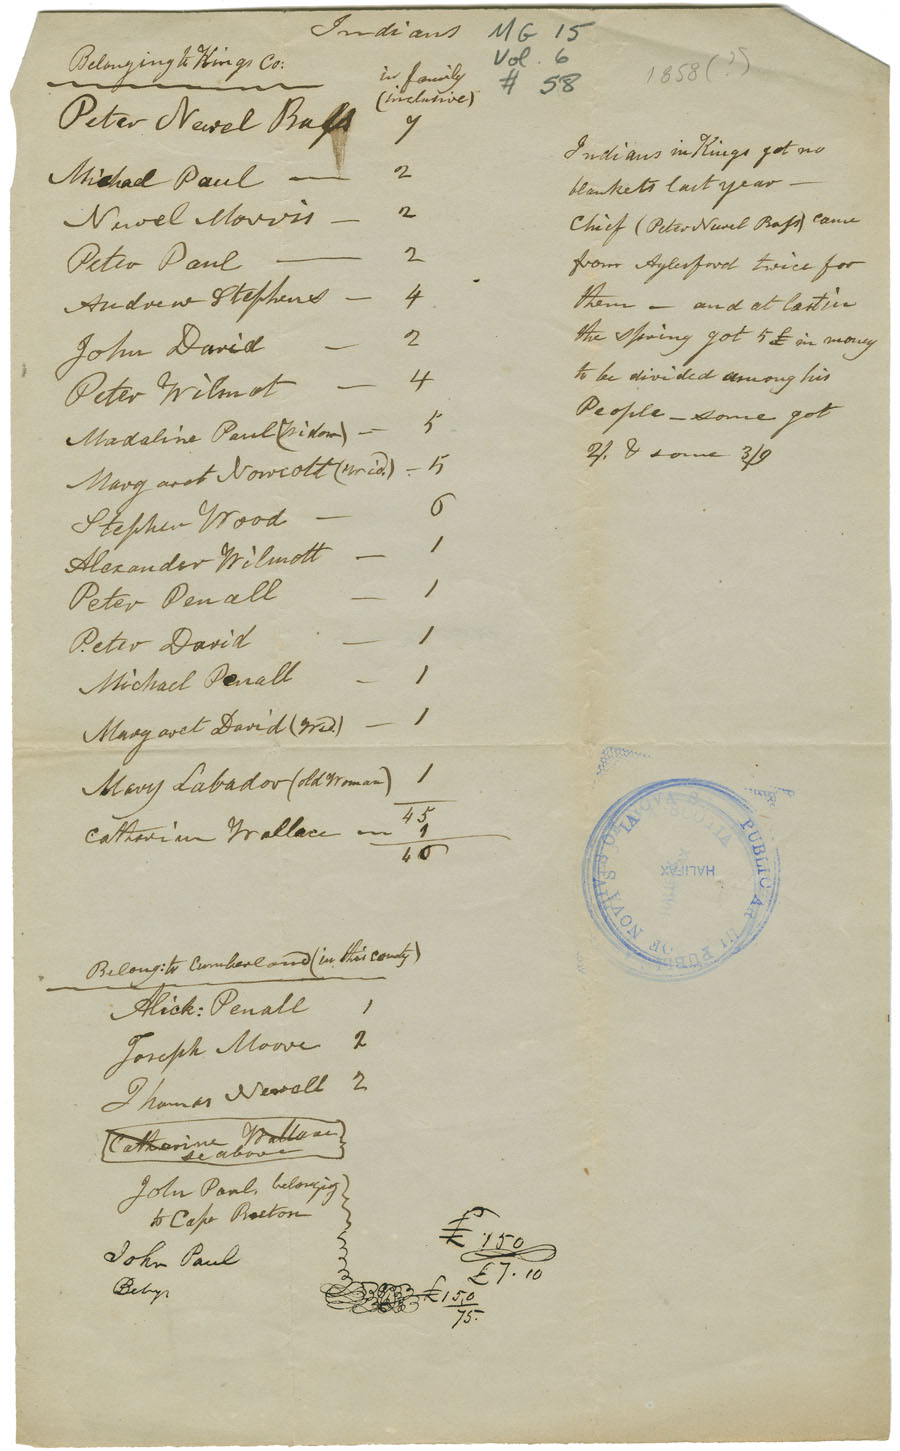 Indians
MG 15
Vol. 6
# 58
1858(?)
Belonging to Kings Co:
in family
(inclusive)
Peter Newel Bass 7
Michael Paul — 2
Newel Morris — 2
Peter Paul — 2
Andrew Stephens — 4
John David — 2
Peter Wilmot — 4
Madaline Paul (Widow) — 5
Margaret Nowcott (Wid.) - 5
Stephen Wood — 6
Alexander Wilmott — 1
Peter Penall — 1
Peter David — 1
Michael Penall - 1
Margaret David (Wid.) — 1
Mary Labador (old Woman) 1
45
Catharine Wallace — 1
46
Indians in Kings got no
blankets last year —
Chief (Peter Newel Bass) came
from Aylesford twice for
them — and at last in
the Spring got 5 £ in money
to be divided among his
People — some got
2/. & some 3/9
PUBLIC AR
OF NOVA SCOTIA
HALIFAX
Belong: to Cumberland (in this county)
Alick: Penall 1
Joseph Moore 2
Thomas Newell 2
Catharine Wallace
se above
John Paul, belonging
to Cape Breton
John Paul
£ 150
£7.10
£150
75.